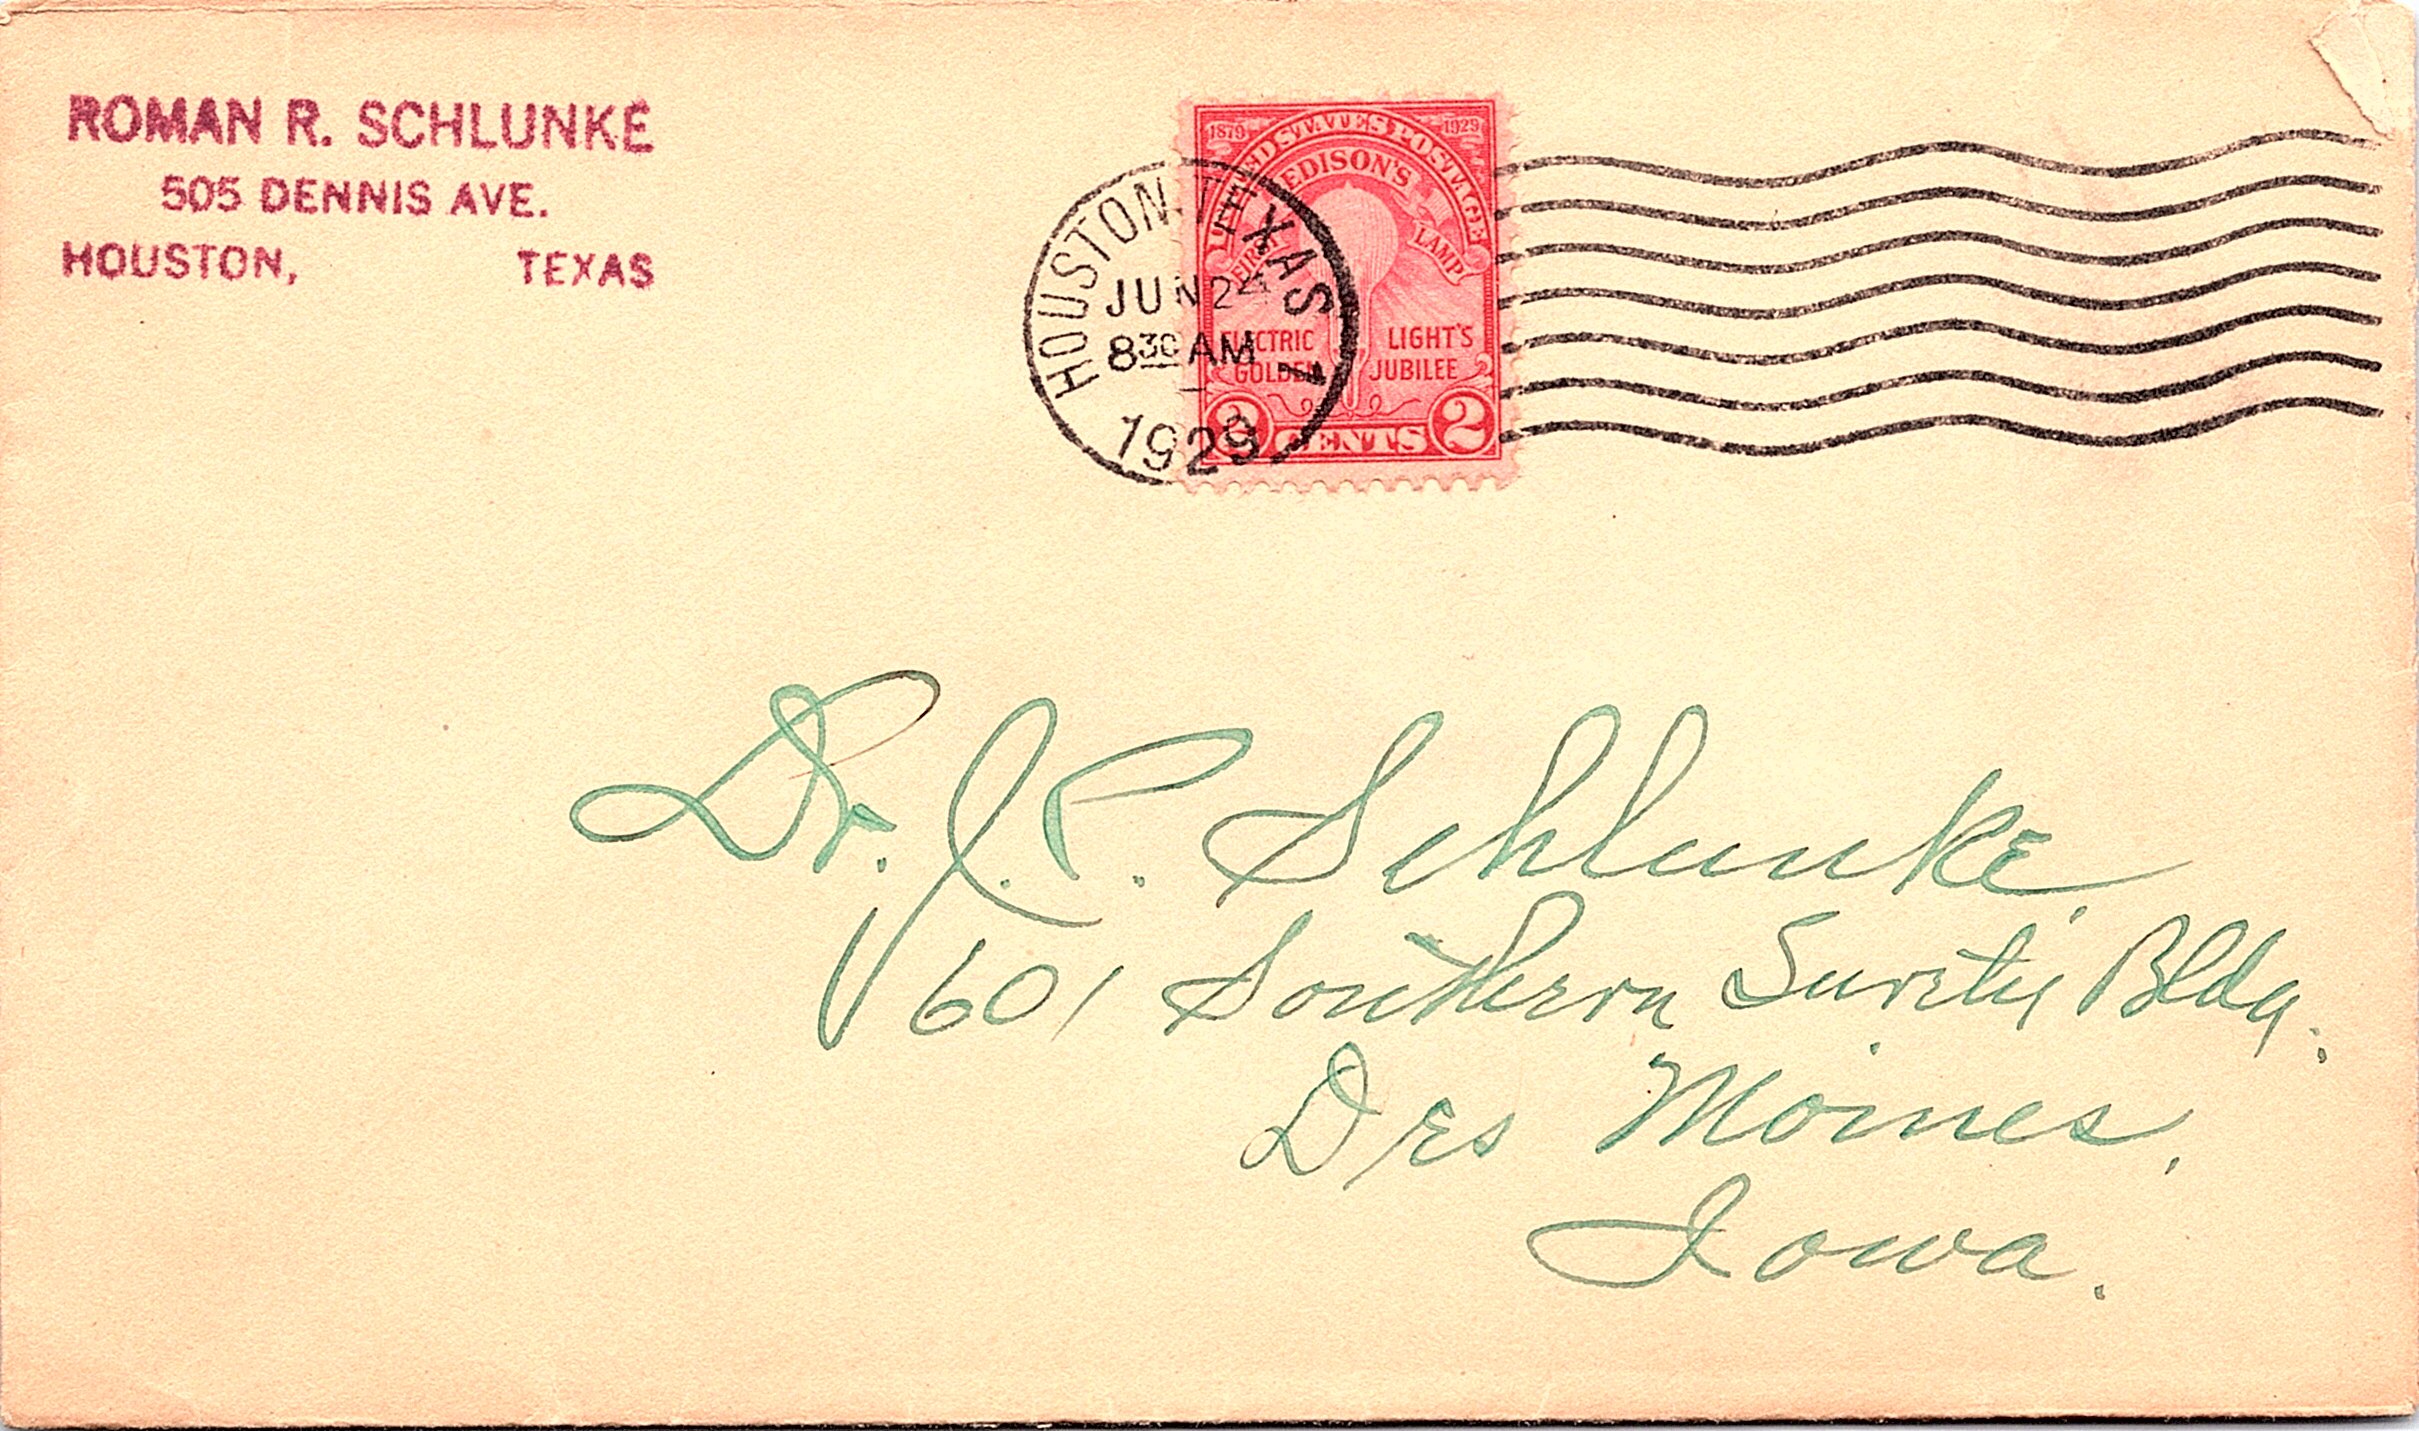 ROMAN R. SCHLUNKE
505 DENNIS AVE.
HOUSTON, TEXAS
HOUSTON, TEXAS
JUN 24
8 30 AM
1
1929
1879 1929
UNITED STATES POSTAGE
EDISON'S
FIRST LAMP
ELECTRIC LIGHT'S
GOLDEN JUBILEE
2 CENTS 2
Dr. J. P. Schlunke,
601 Southern Surety Bldg.
Des Moines,
Iowa.